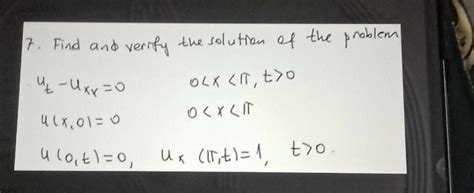 7. Find and verify the solution of the problem
u_t - u_xx = 0 0<x<π, t>0
u(x,0) = 0 0<x<π
u(0,t) = 0, u_x (π,t) = 1, t>0.